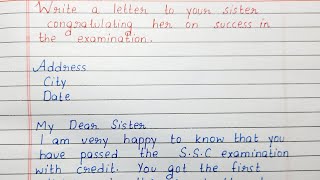 Write a letter to your sister
congratulating her on success in
the examination.
Address
City
Date
My Dear Sister
I am very happy to know that you
have passed the S.S.C examination
with credit. You got the first